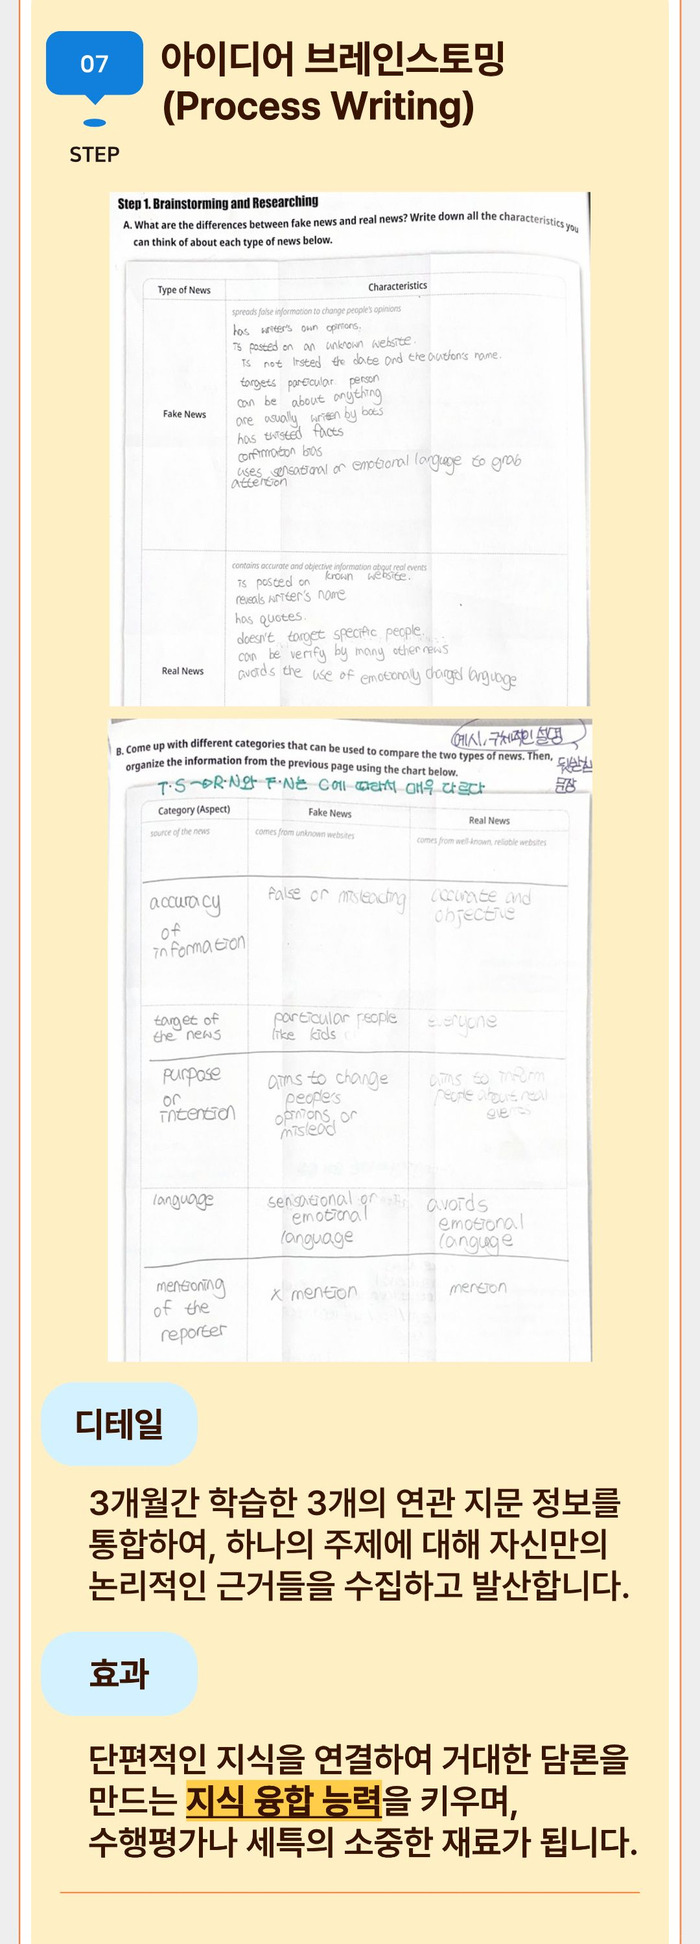 07
STEP
아이디어 브레인스토밍
(Process Writing)
Step 1. Brainstorming and Researching
A. What are the differences between fake news and real news? Write down all the characteristics you
can think of about each type of news below.
Type of News
Characteristics
Fake News
spreads false information to change people's opinions
has writer's own opinions.
is posted on an unknown website.
is not listed the date and the author's name.
targets particular person
can be about anything
are usually written by bots
has twisted facts
confirmation bias
uses sensational or emotional language to grab
attention
Real News
contains accurate and objective information about real events
is posted on known website.
reveals writer's name
has quotes.
doesn't target specific people
can be verify by many other news
avoids the use of emotionally charged language
예시, 구체적인 설명
B. Come up with different categories that can be used to compare the two types of news. Then,
organize the information from the previous page using the chart below.
뒷받침
문장
T.S → R.N와 F.N는 C에 따라서 매우 다르다
Category (Aspect)
Fake News
Real News
source of the news
comes from unknown websites
comes from well-known, reliable websites
accuracy
of
information
false or misleading
accurate and
objective
target of
the news
particular people
like kids
everyone
purpose
or
intention
aims to change
people's
opinions, or
mislead
aims to inform
people about real
events
language
sensational or
emotional
language
avoids
emotional
language
mentioning
of the
reporter
x mention
mention
디테일
3개월간 학습한 3개의 연관 지문 정보를
통합하여, 하나의 주제에 대해 자신만의
논리적인 근거들을 수집하고 발산합니다.
효과
단편적인 지식을 연결하여 거대한 담론을
만드는 지식 융합 능력을 키우며,
수행평가나 세특의 소중한 재료가 됩니다.